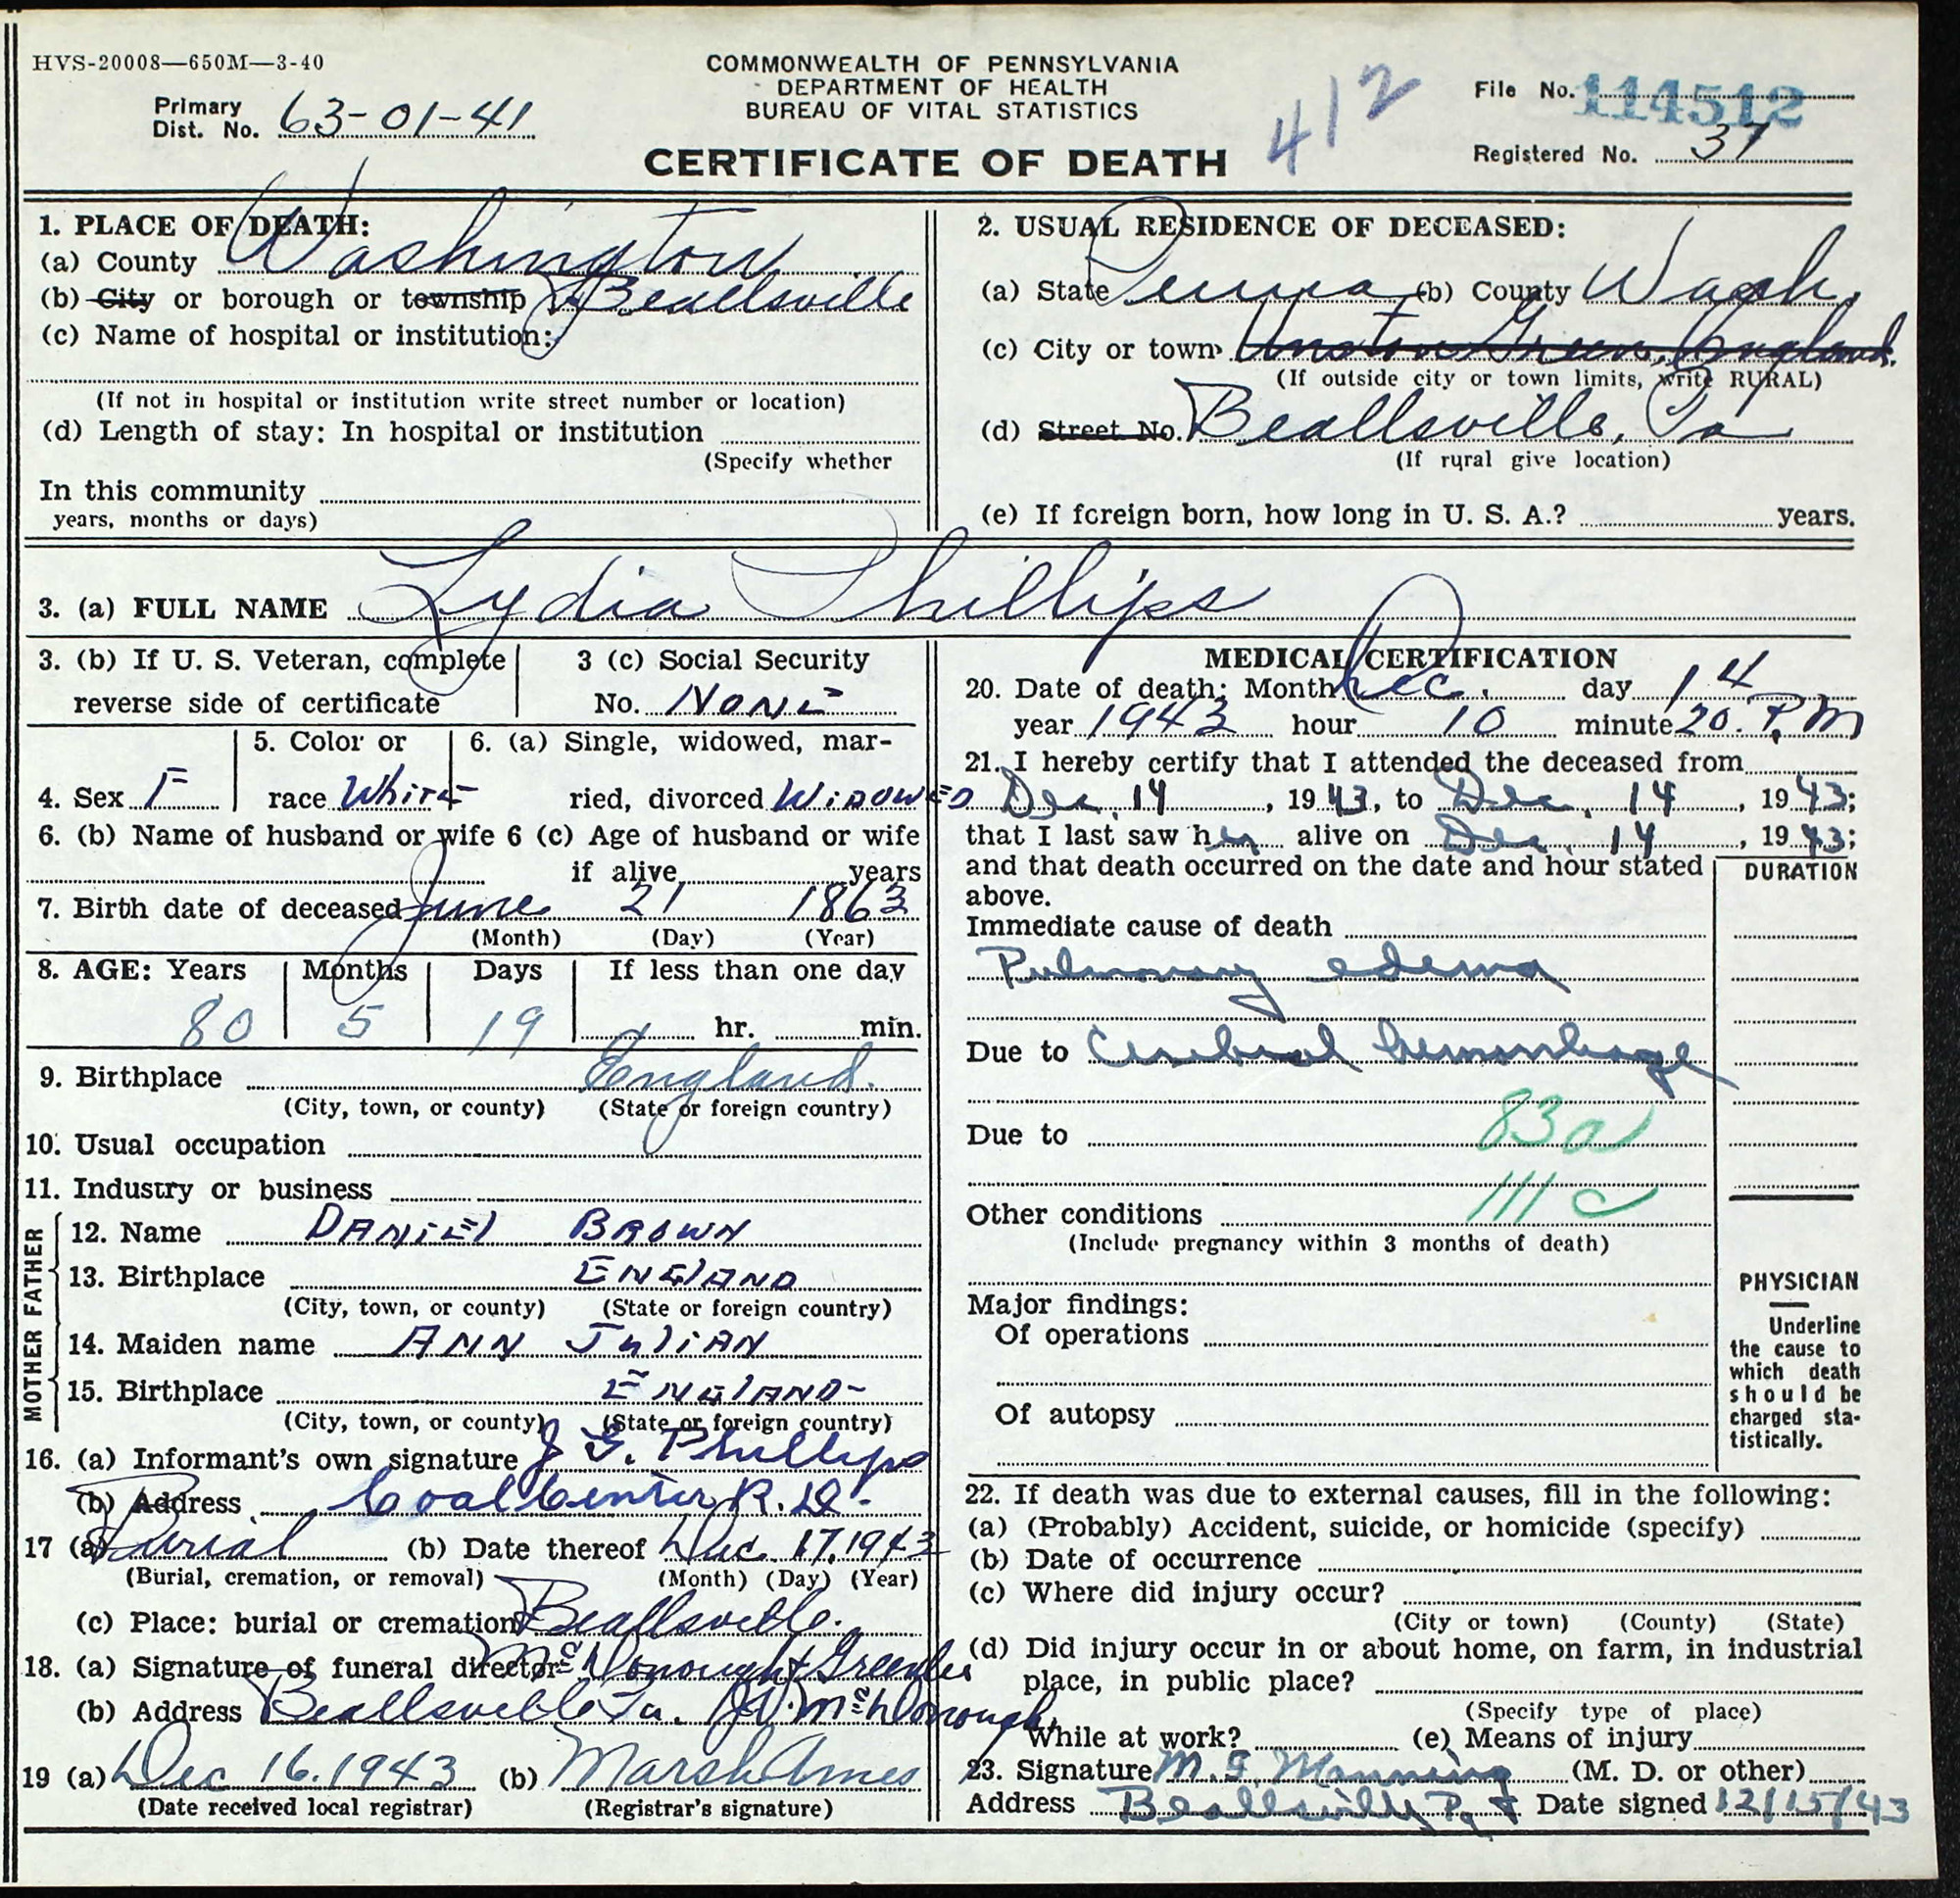 HVS-20008—650M—3-40
COMMONWEALTH OF PENNSYLVANIA
DEPARTMENT OF HEALTH
BUREAU OF VITAL STATISTICS
CERTIFICATE OF DEATH
Primary Dist. No. 63-01-41
412
File No. 114512
Registered No. 37
1. PLACE OF DEATH:
(a) County Washington
(b) City or borough or township Beallsville
(c) Name of hospital or institution:
(If not in hospital or institution write street number or location)
(d) Length of stay: In hospital or institution
(Specify whether
In this community
years, months or days)
2. USUAL RESIDENCE OF DECEASED:
(a) State Penna (b) County Wash.
(c) City or town Green, England.
(If outside city or town limits, write RURAL)
(d) Street No. Beallsville, Pa
(If rural give location)
(e) If foreign born, how long in U. S. A.? years.
3. (a) FULL NAME Lydia Phillips
3. (b) If U. S. Veteran, complete
reverse side of certificate
3 (c) Social Security
No. NONE
4. Sex F
5. Color or
race White
6. (a) Single, widowed, mar-
ried, divorced WIDOWED
6. (b) Name of husband or wife 6 (c) Age of husband or wife
if alive years
7. Birth date of deceased June 21 1863
(Month) (Day) (Year)
8. AGE: Years Months Days If less than one day
80 5 19 hr. min.
9. Birthplace England.
(City, town, or county) (State or foreign country)
10. Usual occupation
11. Industry or business
FATHER
12. Name DANIEl BROWN
13. Birthplace ENGlAND
(City, town, or county) (State or foreign country)
MOTHER
14. Maiden name ANN JuliAN
15. Birthplace ENGlAND-
(City, town, or county) (State or foreign country)
16. (a) Informant's own signature J G. Phillips
(b) Address Coal Center R. D.
17 (a) Burial (b) Date thereof Dec. 17. 1943
(Burial, cremation, or removal) (Month) (Day) (Year)
(c) Place: burial or cremation Beallsville.
18. (a) Signature of funeral director McDonough & Greenlee
(b) Address Beallsville Pa. McDonough
19 (a) Dec 16. 1943 (b) Marsh Ames
(Date received local registrar) (Registrar's signature)
MEDICAL CERTIFICATION
20. Date of death: Month Dec. day 14
year 1943 hour 10 minute 20. P.M
21. I hereby certify that I attended the deceased from
Dec. 14, 1943, to Dec. 14, 1943;
that I last saw her alive on Dec. 14, 1943;
and that death occurred on the date and hour stated
above.
DURATION
Immediate cause of death
Pulmonary edema
Due to Cerebral hemorrhage
83a
Due to
111c
Other conditions
(Include pregnancy within 3 months of death)
Major findings:
Of operations
Of autopsy
PHYSICIAN
Underline
the cause to
which death
should be
charged sta-
tistically.
22. If death was due to external causes, fill in the following:
(a) (Probably) Accident, suicide, or homicide (specify)
(b) Date of occurrence
(c) Where did injury occur?
(City or town) (County) (State)
(d) Did injury occur in or about home, on farm, in industrial
place, in public place?
(Specify type of place)
While at work? (e) Means of injury
23. Signature M. G. Manning (M. D. or other)
Address Beallsville, Pa Date signed 12/15/43